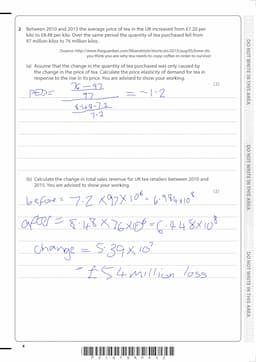 2 Between 2010 and 2015 the average price of tea in the UK increased from £7.20 per
kilo to £8.48 per kilo. Over the same period the quantity of tea purchased fell from
97 million kilos to 76 million kilos.
(a) Assume that the change in the quantity of tea purchased was only caused by
the change in the price of tea. Calculate the price elasticity of demand for tea in
response to the rise in its price. You are advised to show your working.
(2)
PED =
76 - 97
97
= -1.2
8.48-7.2
7.2
(b) Calculate the change in total sales revenue for UK tea retailers between 2010 and
2015. You are advised to show your working.
(2)
before = 7.2 × 97 × 10⁶ = 6.984×10⁸
after = 8.48 × 76×10⁶ = 6.448×10⁸
change = 5.39 × 10⁷
- £54 million loss
4
DO NOT WRITE IN THIS AREA
DO NOT WRITE IN THIS AREA
DO NOT WRITE IN THIS AREA